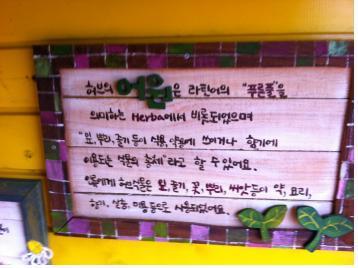 허브의 어원은 라틴어의 "푸른풀"을
의미하는 Herba에서 비롯되었으며
"잎, 뿌리, 줄기 등이 식용, 약용에 쓰여거나 향기에
이용되는 식물의 총체"라고 할 수 있어요.
식물은 잎, 줄기, 꽃, 뿌리, 씨앗 등이 약, 요리,
향기, 살충, 미용 등으로 사용되었어요.